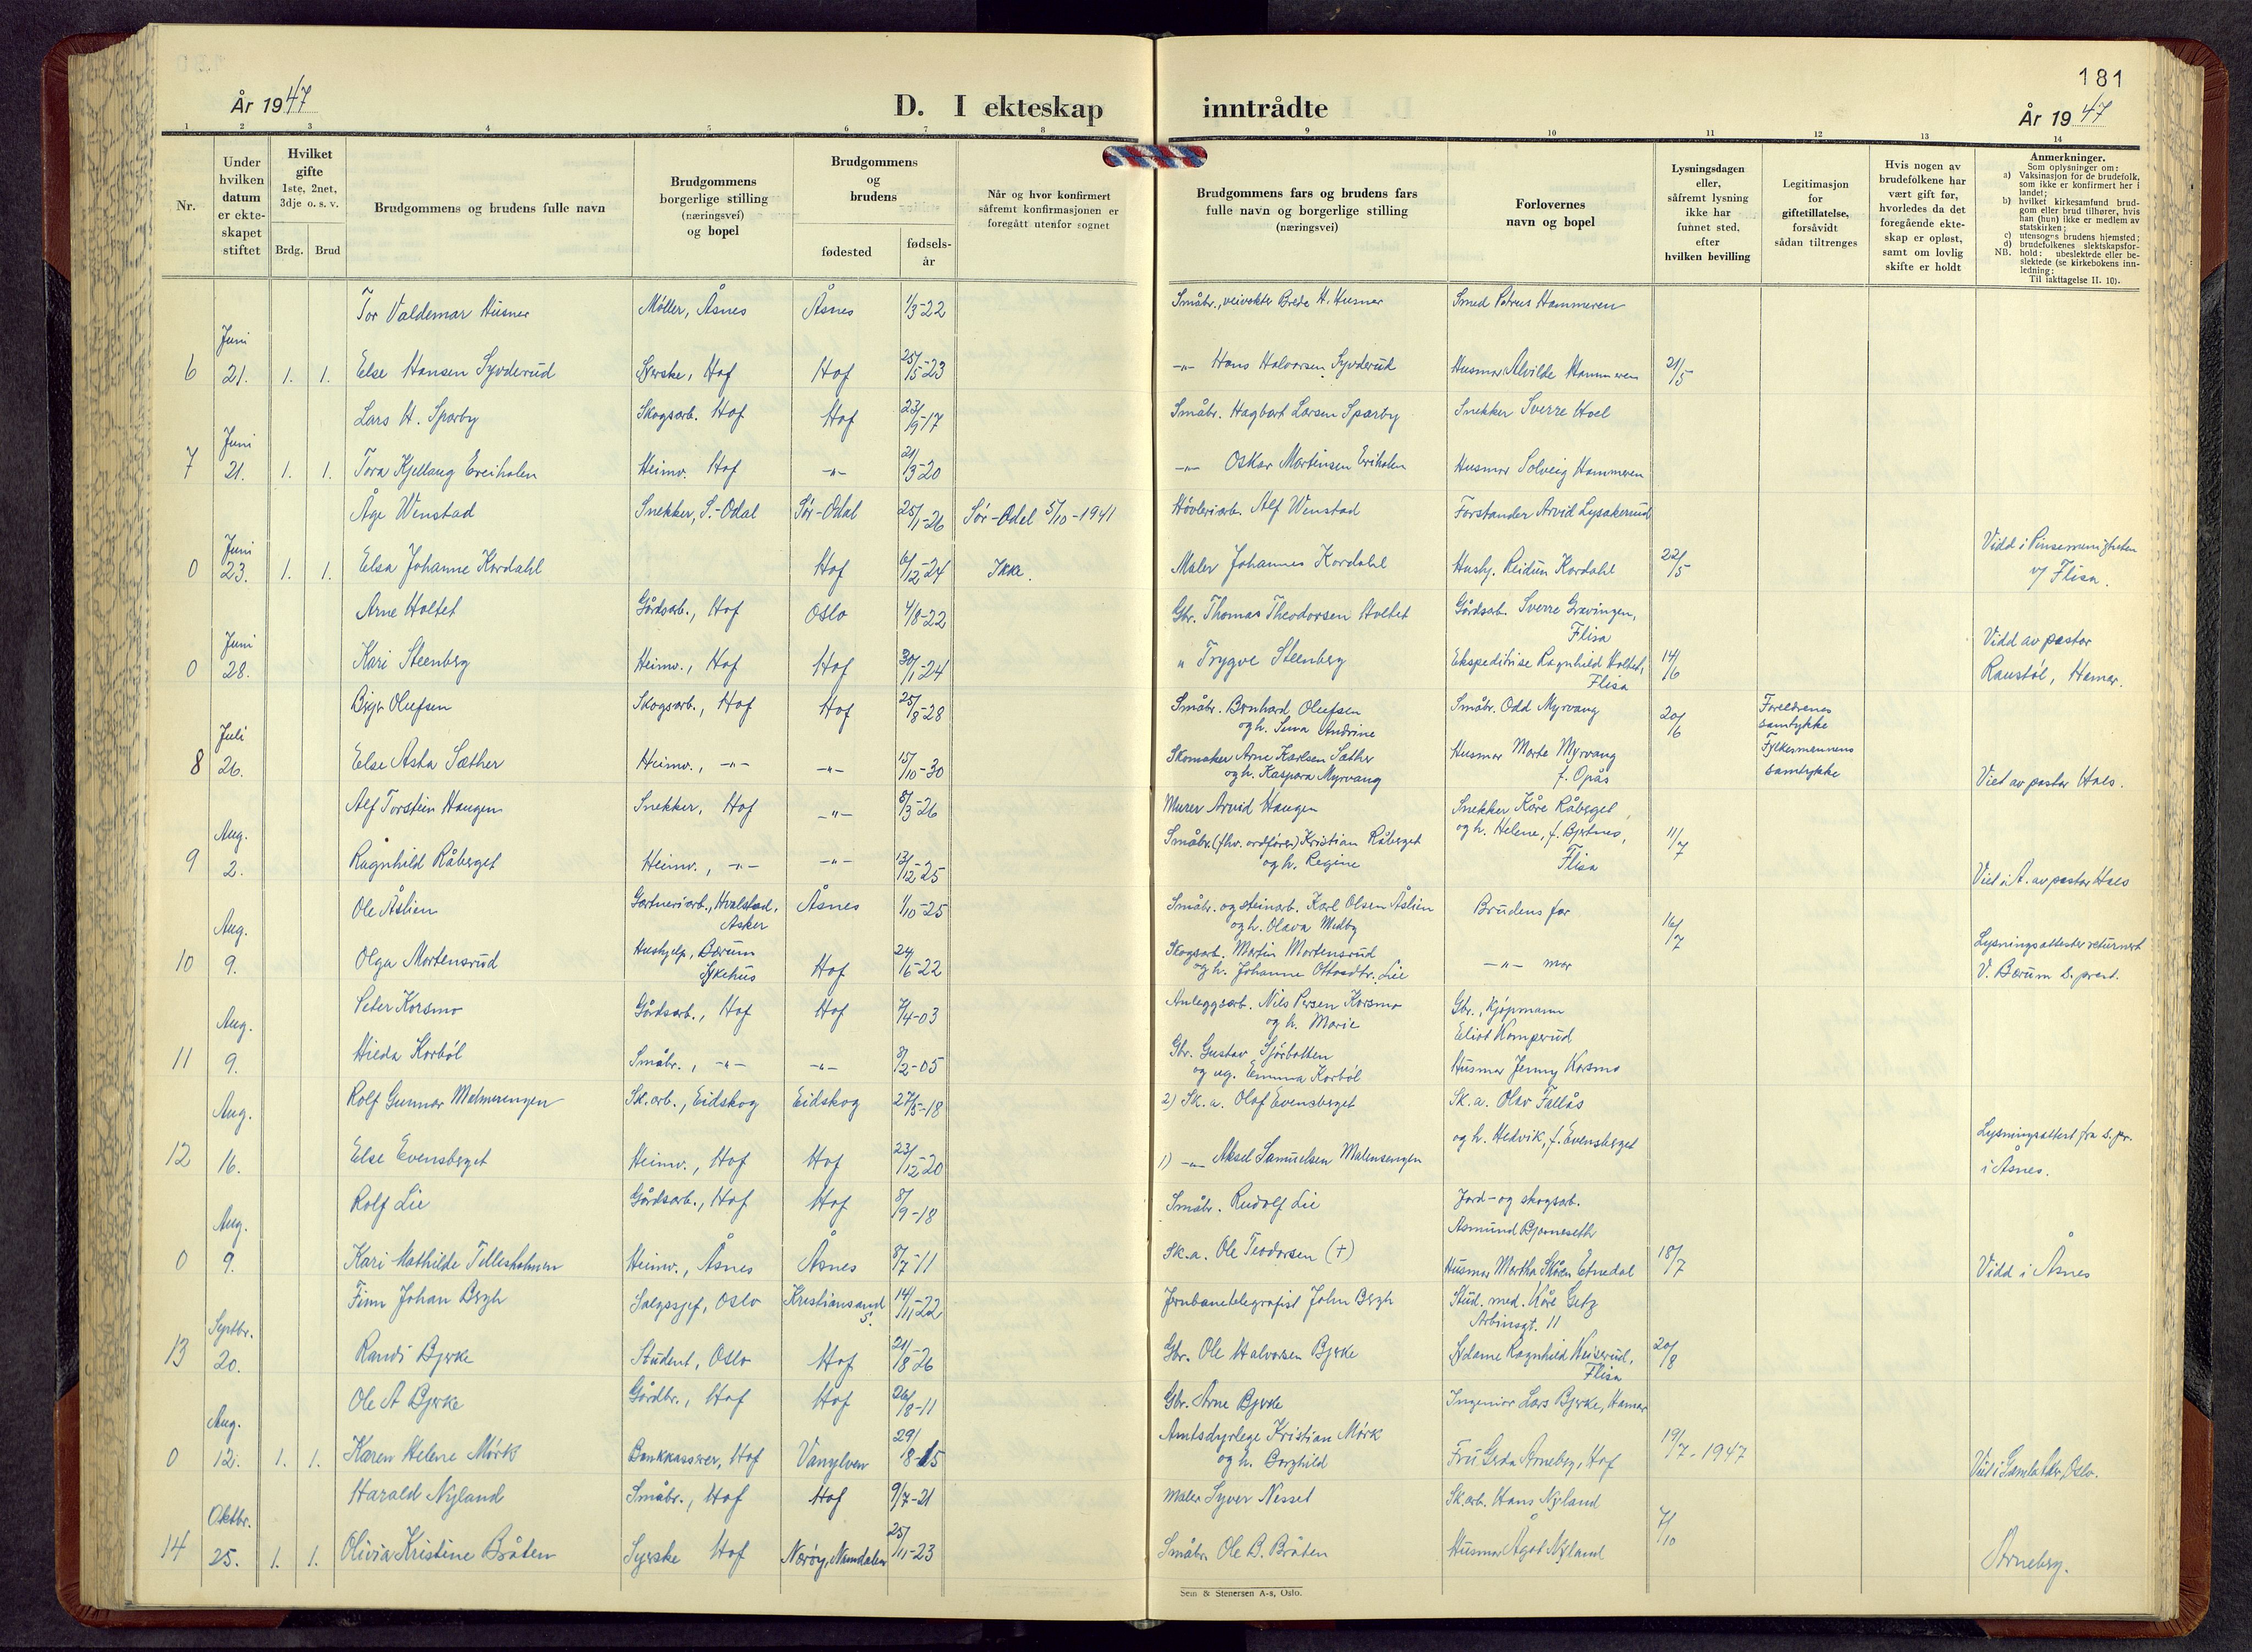 181
År 1947
D. I ekteskap inntrådte
År 1947
1 2 3 4 5 6 7 8 9 10 11 12 13 14
Nr.
Under hvilken datum er ekteskapet stiftet
Hvilket gifte 1ste, 2net, 3dje o. s. v.
Brdg. Brud
Brudgommens og brudens fulle navn
Brudgommens borgerlige stilling (næringsvei) og bopel
Brudgommens og brudens
fødested
fødselsår
Når og hvor konfirmert såfremt konfirmasjonen er foregått utenfor sognet
Brudgommens fars og brudens fars fulle navn og borgerlige stilling (næringsvei)
Forlovernes navn og bopel
Lysningsdagen eller, såfremt lysning ikke har funnet sted, efter hvilken bevilling
Legitimasjon for giftetillatelse, forsåvidt sådan tiltrenges
Hvis nogen av brudefolkene har vært gift før, hvorledes da det foregående ekteskap er opløst, samt om lovlig skifte er holdt
Anmerkninger.
Som oplysninger om:
a) Vaksinasjon for de brudefolk, som ikke er konfirmert her i landet;
b) hvilket kirkesamfund brudgom eller brud tilhører, hvis han (hun) ikke er medlem av statskirken;
c) utensogns brudens hjemsted;
d) brudefolkenes slektskapsforhold: ubeslektede eller beslektede (se kirkebokens innledning:
NB. Til iakttagelse II. 10).
Tor Valdemar Husner Møller, Åsnes Åsnes 1/3-22 Småbr., veivokter Brede H. Husner Smed Petrus Hammeren
6 Juni 21. 1. 1. Else Hansen Syvderud Syerske, Hof Hof 25/5-23 -"- Hans Halvorsen Syvderud Husmor Alvilde Hammeren 21/5
Lars H. Sparby Skogsarb. Hof Hof 23/9-17 Småbr. Hagbart Larsen Sparby Snekker Sverre Hoel
7 Juni 21. 1. 1. Tora Kjellaug Ereiholen Heimv. Hof -"- 21/3-20 -"- Oskar Martinsen Eriholen Husmor Solveig Hammeren
Åge Wenstad Snekker, S.-Odal Sør-Odal 25/1-26 Sør-Odal 5/10-1941 Høvleriarb. Alf Wenstad Forstander Arvid Lysakerrud
0 Juni 23. 1. 1. Elsa Johanne Kordahl Hof 6/12-24 Ikke. Maler Johannes Kordahl Hushj. Reidun Kordahl 22/5 Vidd i Pinsemenigheten v/ Flisa.
Arne Holtet Gårdsarb., Hof Oslo 4/8-22 Gbr. Thomas Theodorsen Holtet Gårdsarb. Sverre Gravingen, Flisa
0 Juni 28. Kari Steenberg Heimv., Hof Hof 30/1-24 " Trygve Steenberg Ekspeditrise Ragnhild Holtet, Flisa 14/6 Vidd av pastor Raustøl, Hamar.
Birger Olufsen Skogsarb., Hof Hof 25/8-28 Småbr. Bernhard Olufsen og h. Andrine Småbr. Odd Myrvang 20/6 Foreldrenes samtykke
8 Juli 26. Else Asta Sæther Heimv., -"- -"- 15/10-30 Skomaker Arne Karlsen Sæther og h. Kaspara Myrvang Husmor Marte Myrvang f. Opås Fylkesmannens samtykke Viet av pastor Hals.
Alf Torstein Haugen Snekker, Hof -"- 8/3-26 Murer Arvid Haugen Snekker Kåre Råberget,
9 Aug. 2. Ragnhild Råberget Heimv., -"- -"- 13/12-25 Småbr. (fhv. ordfører) Kristian Råberget og h. Regine og h. Helene, f. Bjertnes, Flisa 11/7 Viet i A. av pastor Hals
Ole Åslien Gartneriarb., Hvalstad, Asker Åsnes 1/10-25 Småbr. og steinarb. Karl Olsen Åslien og h. Olava Medby Brudens far
10 Aug. 9. Olga Mortensrud Hushjelp, Bærum Sykehus Hof 24/6-22 Skogsarb. Martin Mortensrud og h. Johanne Ottosdtr. Lie -"- mor 16/7 Lysningsattester returnert V. Bærum s. prest.
Peter Korsmo Gårdsarb., Hof Hof 7/4-03 Anleggsarb. Nils Persen Korsmo og h. Marie Gbr., Kjøpmann Eliot Komperud
11 Aug. 9. Hilda Korbøl Småbr., -"- -"- 8/2-05 Gbr. Gustav Sjørbotten og ug. Emma Korbøl Husmor Jenny Korsmo
Rolf Gunnar Malmerengen Sk.arb., Eidskog Eidskog 27/5-18 2) Sk. a. Olaf Evensberget Sk. a. Olav Fallås
12 Aug. 16. Else Evensberget Heimv., Hof Hof 23/12-20 1) -"- Aksel Samuelsen Malmerengen og h. Hedvik, f. Evensberget Lysningsattest fra s. pr. i Åsnes.
Rolf Lie Gårdsarb., Hof Hof 8/9-18 Småbr. Rudolf Lie Jord- og skogsarb. Asmund Bjørneseth
0 Aug. 9. Kari Mathilde Tellesholmen Heimv., Åsnes Åsnes 8/7-11 Sk. a. Ole Teodorsen (+) Husmor Martha Skåen Etnedal 18/7 Vidd i Åsnes
Finn Johan Bergh Salgssjef, Oslo Kristiansand S. 14/11-22 Jernbanetelegrafist John Bergh Stud. med. Kåre Getz Arbinsgt. 11
13 Septbr. 20. Randi Bjerke Student, Oslo Hof 21/8-26 Gbr. Ole Halvorsen Bjerke Sydame Ragnhild Heiserud, Flisa 20/8
Ole A Bjerke Gårdbr., Hof Hof 26/8-11 Gbr. Arne Bjerke Ingeniør Lars Bjerke, Hamar
0 Aug. 12. 1. 1. Karen Helene Mørk Bankkasserer, Hof Vanylven 29/8-15 Amtsdyrlege Kristian Mørk og h. Borghild Fru Gerda Arneberg, Hof 19/7-1947 Viet i Gamle Aker, Oslo.
Harald Nyland Småbr., Hof Hof 9/7-21 Maler Syver Nesset Sk.arb. Hans Nyland
14 Oktbr. 25. 1. 1. Olivia Kristine Bråten Syerske Hof Nærøy, Namdalen 25/11-23 Småbr. Ole B. Bråten Husmor Ågot Nyland 7/10 Arneberg.
Sem & Stenersen A-s, Oslo.